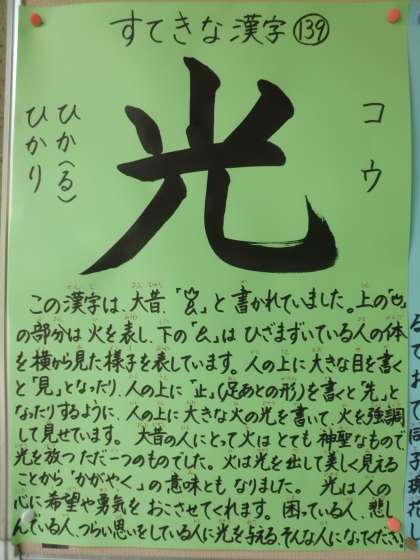 すてきな漢字 139
コウ
光
ひか(る)
ひかり
この漢字は、大昔、「」と書かれていました。上の「」
の部分は火を表し、下の「」はひざまずいている人の体
を横から見た様子を表しています。人の上に大きな目を書く
と「見」となったり、人の上に「止」(足あとの形)を書くと「先」と
なったりするように、人の上に大きな火の光を書いて、火を強調
して見せています。大昔の人にとって火はとても神聖なもので
光を放つただ一つのものでした。火は光を出して美しく見える
ことから「かがやく」の意味ともなりました。光は人の
心に希望や勇気をおこさせてくれます。困っている人、悲し
んでいる人、つらい思いをしている人に光を与える、そんな人になってください